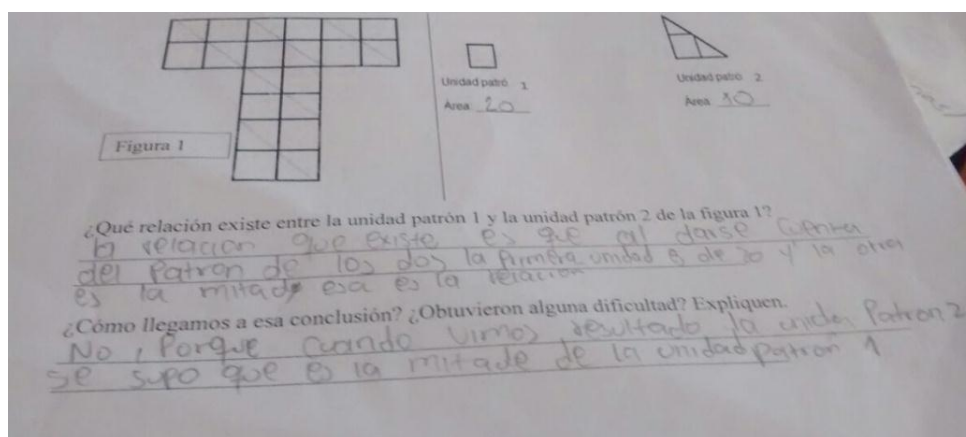 Unidad patró 1
Unidad patró 2
Área: 20
Área 10
Figura 1
¿Qué relación existe entre la unidad patrón 1 y la unidad patrón 2 de la figura 1?
la relacion que existe es que al darse cuenta
del Patron de los dos la primera unidad es de 20 y la otra
es la mitad esa es la relacion
¿Cómo llegamos a esa conclusión? ¿Obtuvieron alguna dificultad? Expliquen.
No, Porque cuando vimos resultado la unida Patron 2
se supo que es la mitade de la unidad patron 1